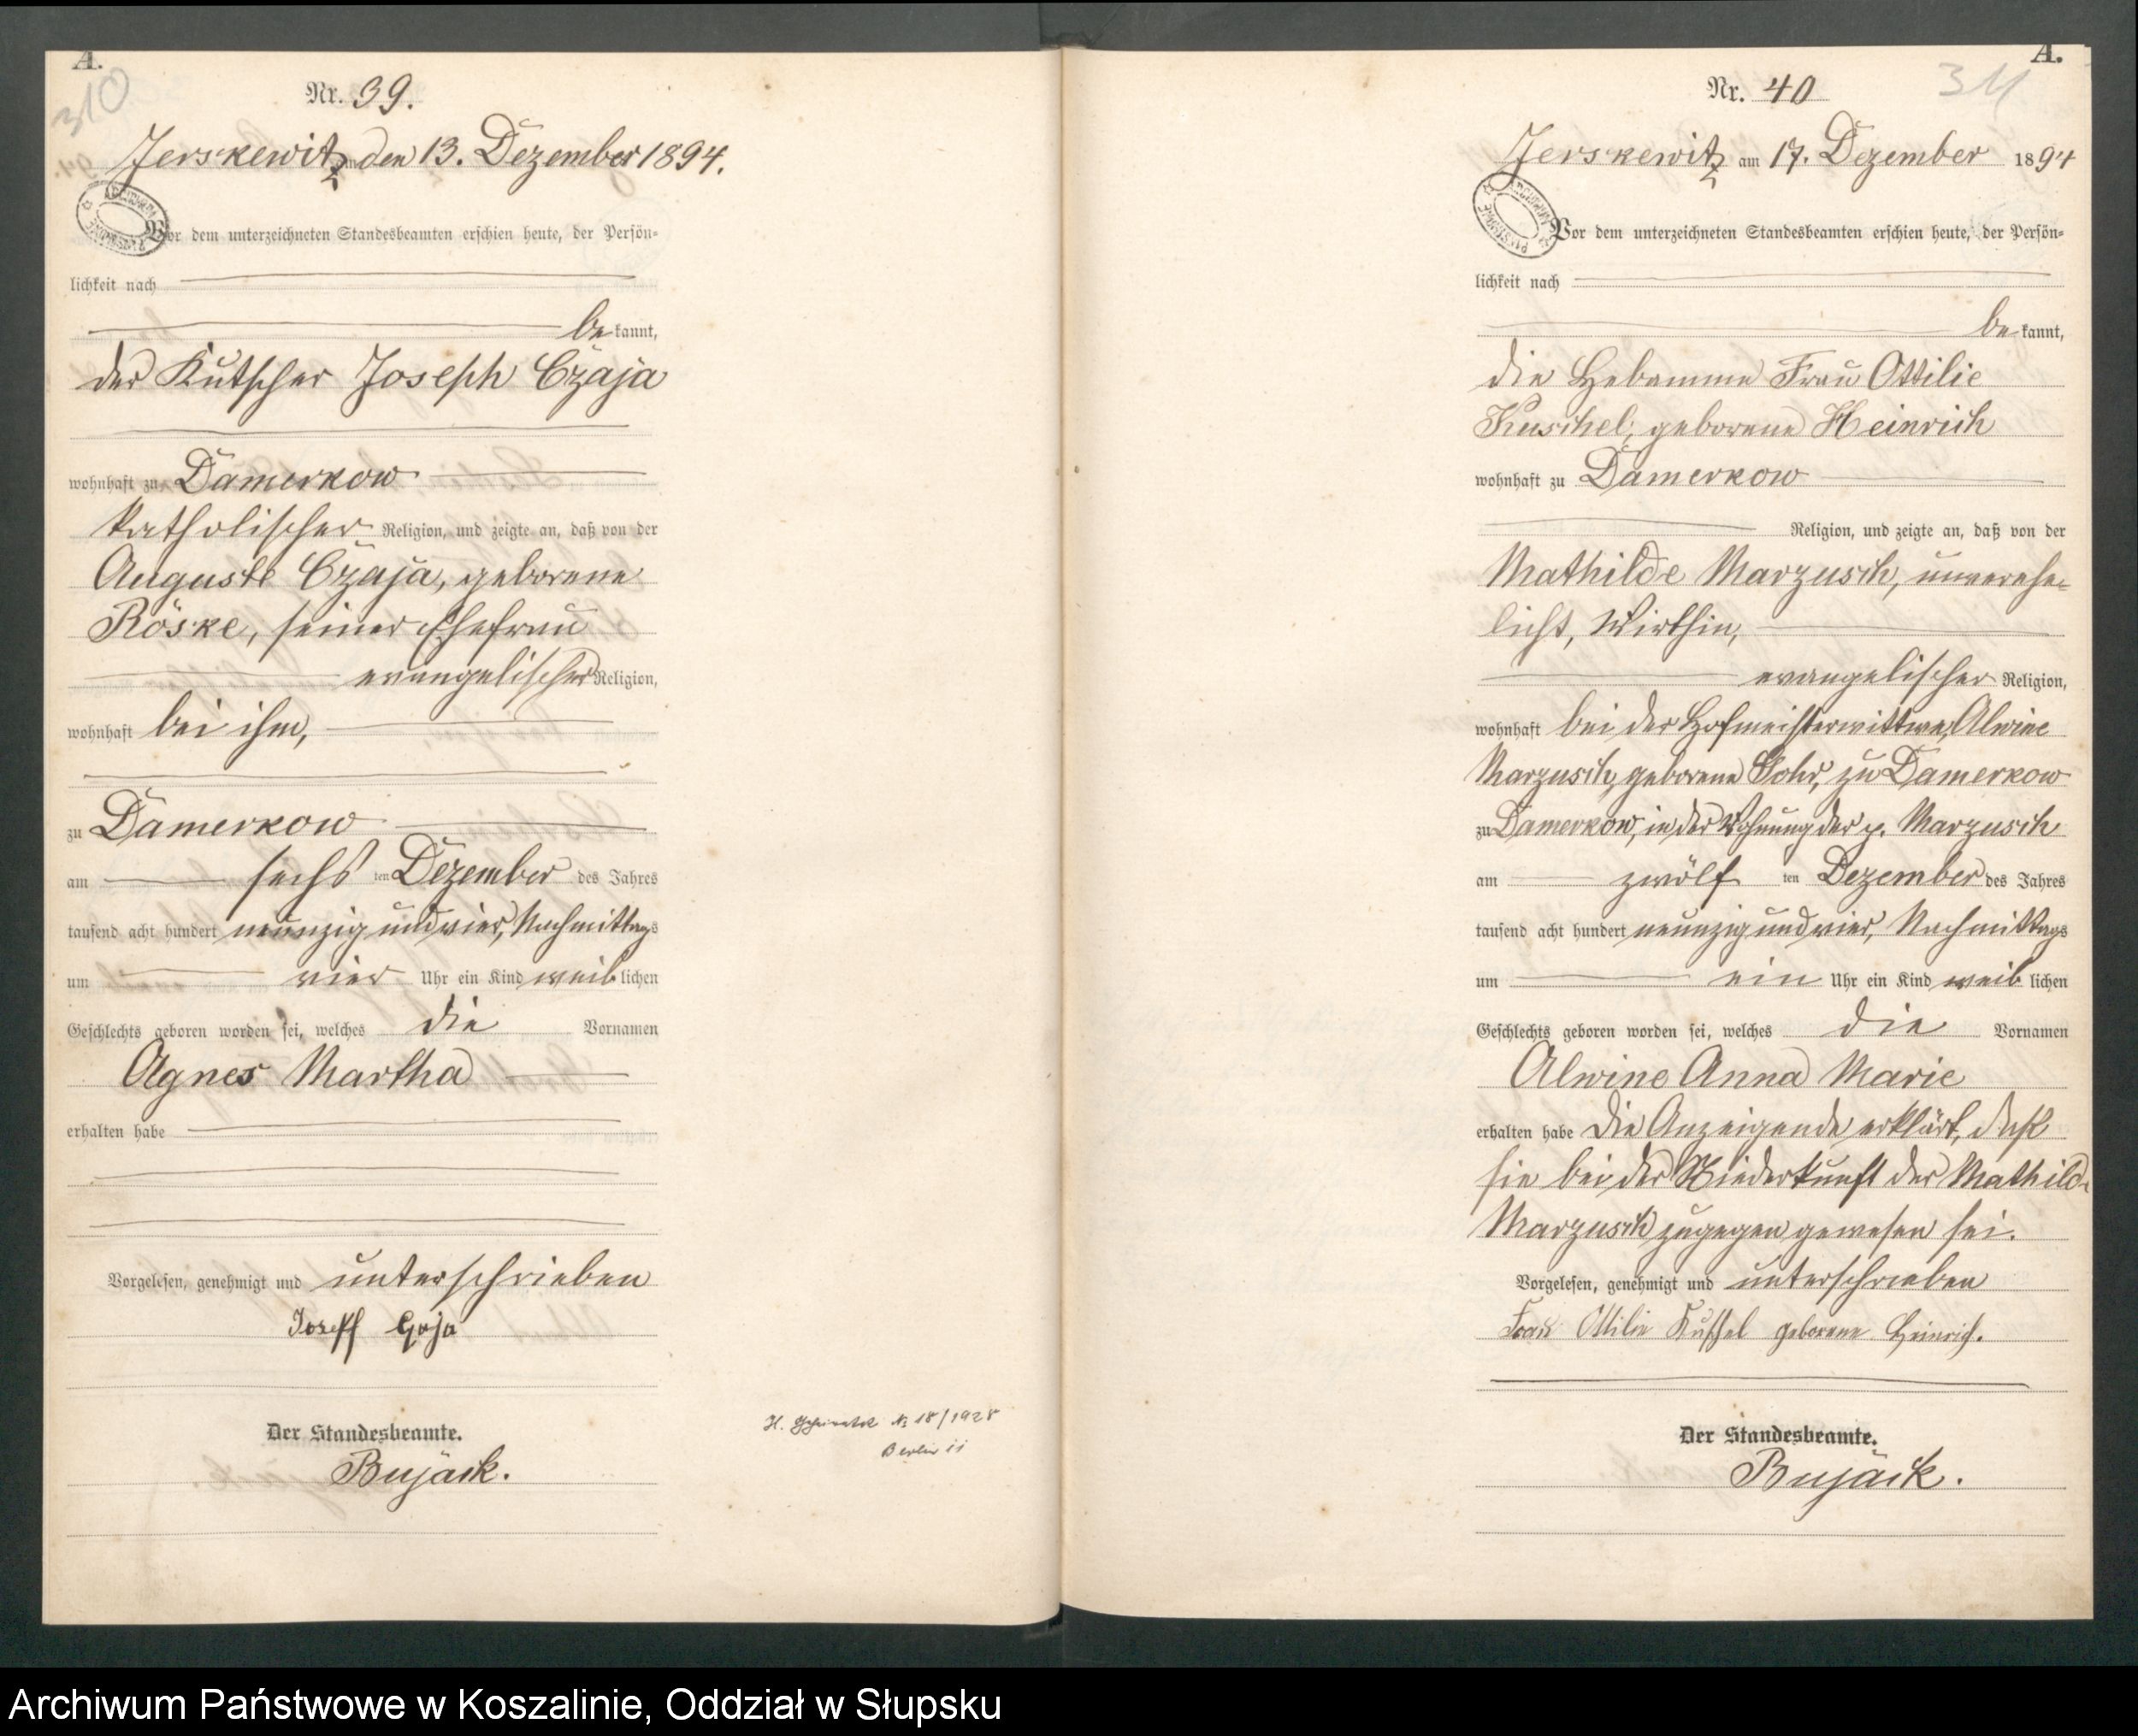 A.
310
Nr. 39.
Jerskewitz, den 13. Dezember 1894.
Vor dem unterzeichneten Standesbeamten erschien heute, der Persön-
lichkeit nach
bekannt,
der Kutscher Joseph Czaja
wohnhaft zu Damerkow
katholischer Religion, und zeigte an, daß von der
Auguste Czaja, geborene
Röske, seiner Ehefrau
evangelischer Religion,
wohnhaft bei ihm,
zu Damerkow
am sechs ten Dezember des Jahres
tausend acht hundert neunzig und vier, Nachmittags
um vier Uhr ein Kind weiblichen
Geschlechts geboren worden sei, welches die Vornamen
Agnes Martha
erhalten habe
Vorgelesen, genehmigt und unterschrieben
Joseff Czaja
Der Standesbeamte.
Bujack.
H. Geheiratet № 18/1928
Berlin II
A.
311
Nr. 40
Jerskewitz am 17. Dezember 1894
Vor dem unterzeichneten Standesbeamten erschien heute, der Persön-
lichkeit nach
bekannt,
die Hebamme Frau Ottilie
Kuschel, geborene Heinrich
wohnhaft zu Damerkow
Religion, und zeigte an, daß von der
Mathilde Marzusch, unverehe-
licht, Wirthin,
evangelischer Religion,
wohnhaft bei der Hofmeisterwittwe, Alwine
Marzusch, geborene Gohr, zu Damerkow
zu Damerkow, in der Wohnung der p. Marzusch
am zwölf ten Dezember des Jahres
tausend acht hundert neunzig und vier, Nachmittags
um ein Uhr ein Kind weiblichen
Geschlechts geboren worden sei, welches die Vornamen
Alwine Anna Marie
erhalten habe Die Anzeigende erklärt, daß
sie bei der Niederkunft der Mathilde
Marzusch zugegen gewesen sei.
Vorgelesen, genehmigt und unterschrieben
Frau Ottilie Kuschel geborene Heinrich.
Der Standesbeamte.
Bujack.
Archiwum Państwowe w Koszalinie, Oddział w Słupsku